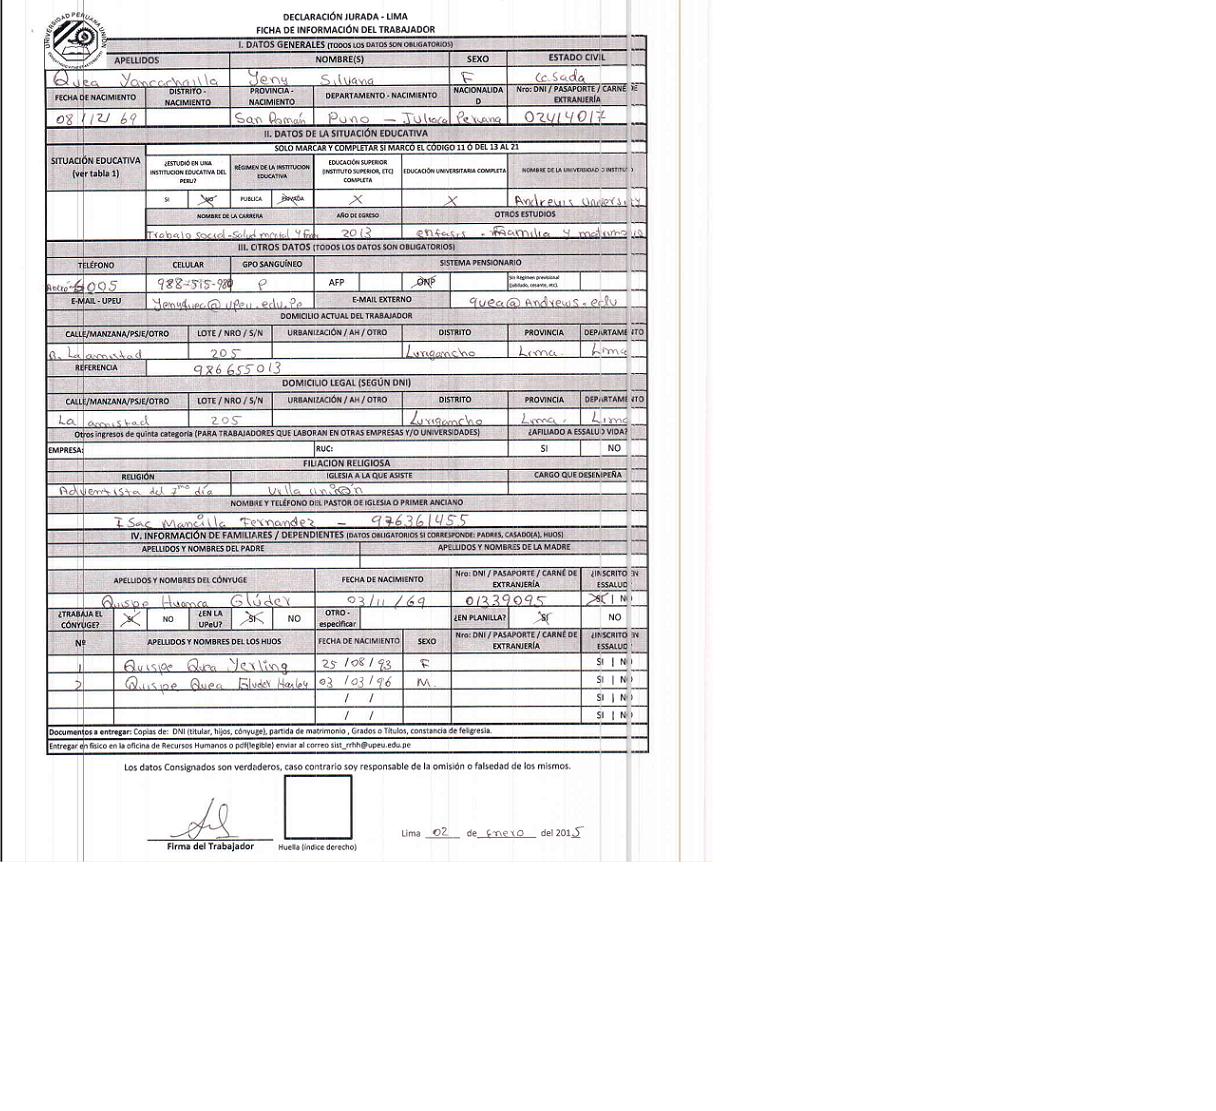 UNIVERSIDAD PERUANA UNIÓN
DECLARACIÓN JURADA - LIMA
FICHA DE INFORMACIÓN DEL TRABAJADOR
I. DATOS GENERALES (TODOS LOS DATOS SON OBLIGATORIOS)
APELLIDOS NOMBRE(S) SEXO ESTADO CIVIL
Quea Yancachajlla Yeny Silvana F Casada
FECHA DE NACIMIENTO DISTRITO - NACIMIENTO PROVINCIA - NACIMIENTO DEPARTAMENTO - NACIMIENTO NACIONALIDAD Nro: DNI / PASAPORTE / CARNÉ DE EXTRANJERÍA
08/12/69 San Román Puno - Juliaca Peruana 02414017
II. DATOS DE LA SITUACIÓN EDUCATIVA
SOLO MARCAR Y COMPLETAR SI MARCÓ EL CÓDIGO 11 Ó DEL 13 AL 21
SITUACIÓN EDUCATIVA (ver tabla 1) ¿ESTUDIÓ EN UNA INSTITUCION EDUCATIVA DEL PERU? RÉGIMEN DE LA INSTITUCION EDUCATIVA EDUCACIÓN SUPERIOR (INSTITUTO SUPERIOR, ETC) COMPLETA EDUCACIÓN UNIVERSITARIA COMPLETA NOMBRE DE LA UNIVERSIDAD O INSTITUTO
SI NO PUBLICA PRIVADA X X Andrews University
NOMBRE DE LA CARRERA AÑO DE EGRESO OTROS ESTUDIOS
Trabajo social-Salud mental y 2013 enfasis - Familia y
III. OTROS DATOS (TODOS LOS DATOS SON OBLIGATORIOS)
TELÉFONO CELULAR GPO SANGUÍNEO SISTEMA PENSIONARIO
6005 988-515-980 P AFP ONP Sin Régimen previsional (jubilado, cesante, etc).
E-MAIL - UPEU yenyquea@upeu.edu.pe E-MAIL EXTERNO quea@Andrews.edu
DOMICILIO ACTUAL DEL TRABAJADOR
CALLE/MANZANA/PSJE/OTRO LOTE / NRO / S/N URBANIZACIÓN / AH / OTRO DISTRITO PROVINCIA DEPARTAMENTO
La amistad 205 Lurigancho Lima. Lima
REFERENCIA 986655013
DOMICILIO LEGAL (SEGÚN DNI)
CALLE/MANZANA/PSJE/OTRO LOTE / NRO / S/N URBANIZACIÓN / AH / OTRO DISTRITO PROVINCIA DEPARTAMENTO
La amistad 205 Lurigancho Lima. Lima
Otros ingresos de quinta categoria (PARA TRABAJADORES QUE LABORAN EN OTRAS EMPRESAS Y/O UNIVERSIDADES) ¿AFILIADO A ESSALUD VIDA?
EMPRESA: RUC: SI NO
FILIACION RELIGIOSA
RELIGIÓN IGLESIA A LA QUE ASISTE CARGO QUE DESEMPEÑA
Adventista del 7mo día Villa unión
NOMBRE Y TELÉFONO DEL PASTOR DE IGLESIA O PRIMER ANCIANO
Isac Mancilla Fernandez - 976361455
IV. INFORMACIÓN DE FAMILIARES / DEPENDIENTES (DATOS OBLIGATORIOS SI CORRESPONDE: PADRES, CASADO(A), HIJOS)
APELLIDOS Y NOMBRES DEL PADRE APELLIDOS Y NOMBRES DE LA MADRE
APELLIDOS Y NOMBRES DEL CÓNYUGE FECHA DE NACIMIENTO Nro: DNI / PASAPORTE / CARNÉ DE EXTRANJERÍA ¿INSCRITO EN ESSALUD
Quispe Huanca Glúder 03/11/69 01339095 SI | NO
¿TRABAJA EL CÓNYUGE? SI NO ¿EN LA UPeU? SI NO OTRO - especificar ¿EN PLANILLA? SI NO
Nº APELLIDOS Y NOMBRES DEL LOS HIJOS FECHA DE NACIMIENTO SEXO Nro: DNI / PASAPORTE / CARNÉ DE EXTRANJERÍA ¿INSCRITO EN ESSALUD
1 Quispe Quea Yerling 25/08/93 F SI | NO
2 Quispe Quea Gluder Harley 03/03/96 M. SI | NO
/ / SI | NO
/ / SI | NO
Documentos a entregar: Copias de: DNI (titular, hijos, cónyuge), partida de matrimonio , Grados o Títulos, constancia de feligresia.
Entregar en físico en la oficina de Recursos Humanos o pdf(legible) enviar al correo sist_rrhh@upeu.edu.pe
Los datos Consignados son verdaderos, caso contrario soy responsable de la omisión o falsedad de los mismos.
Lima 02 de enero del 2015
Firma del Trabajador Huella (índice derecho)